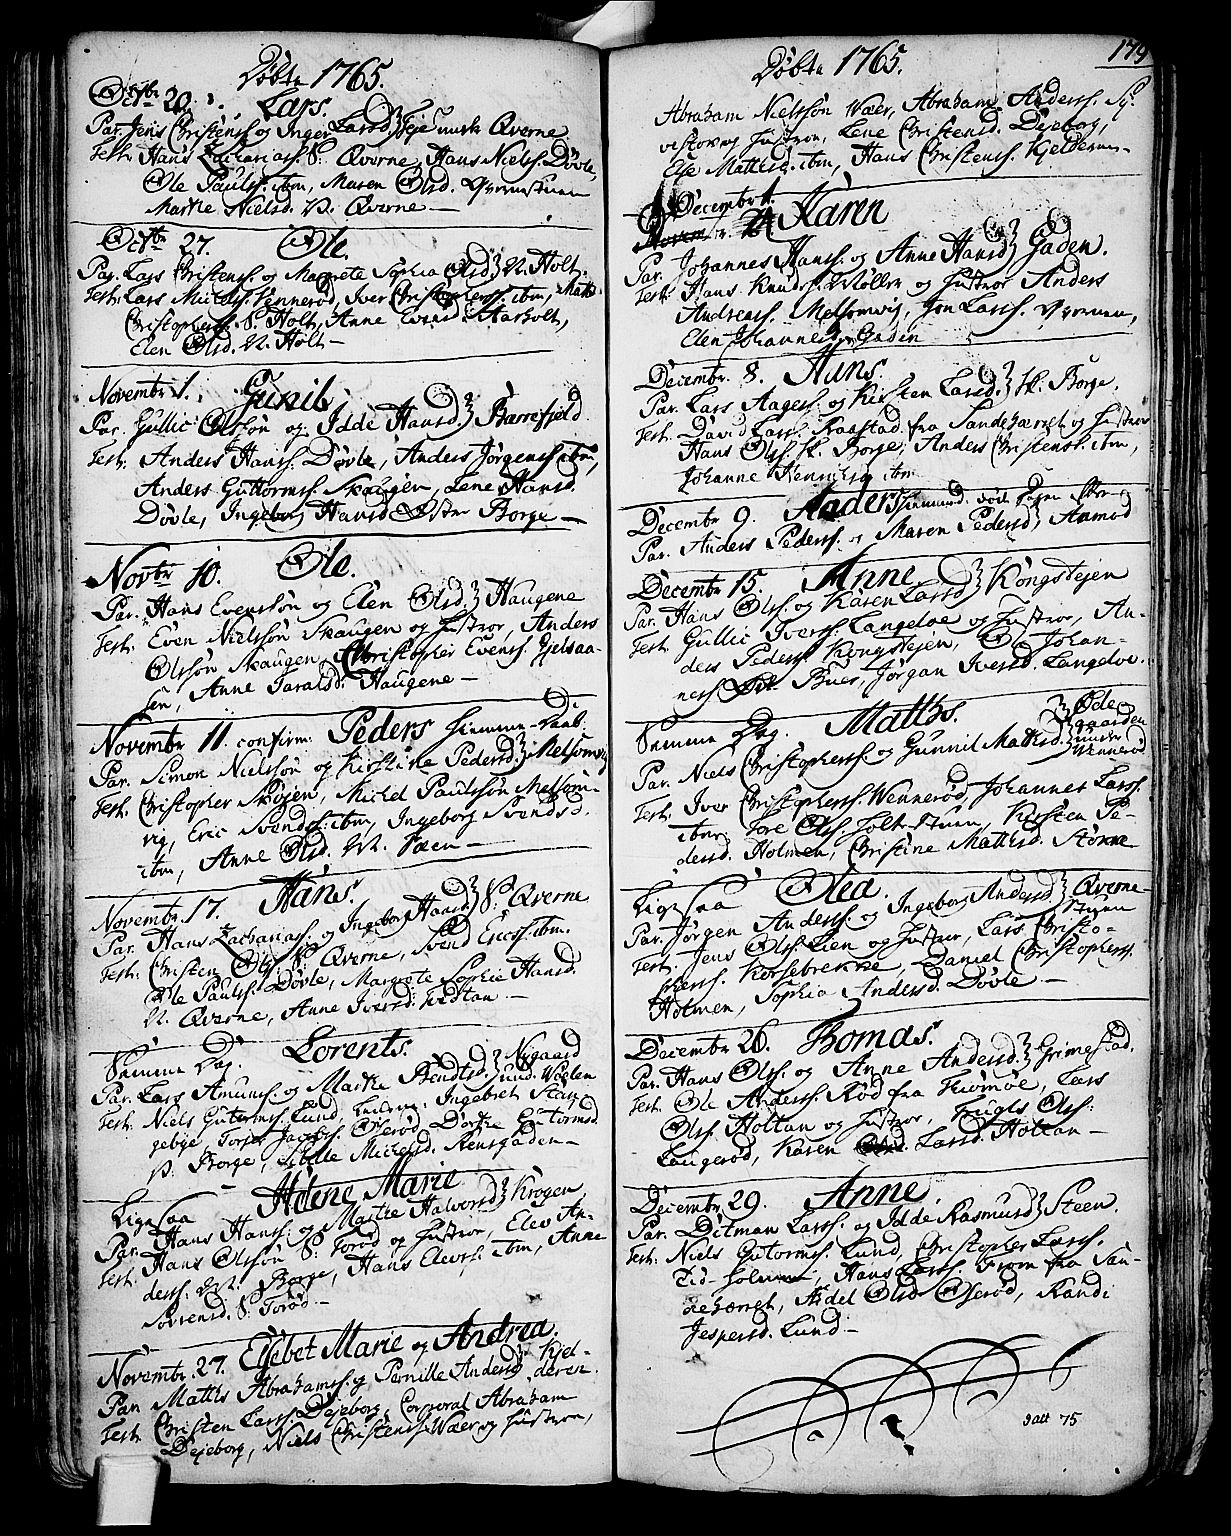 Døbte 1765.
Octbr 20. Lars.
Par. Jens Christens. og Inger Larsd. Qverne
Test. Hans Zachariass. S. Qverne, Hans Niels. Døvle,
Ole Pauls. ibm, Maren Olsd.
Marthe Nielsd. N. Qverne —
Octbr 27. Ole.
Par. Lars Christens. og Magrete Sophia Olsd. N. Holt.
Test. Lars Michels. Vennerød, Iver Christophers. ibm, Matts
Christophers. S. Holt, Anne Evensd. Aarholt,
Elen Olsd. N. Holt —
Novembr 1. Gunil
Par. Gullic Olssøn og Idde Hansd. Barrefjeld
Test. Anders Hanss. Døvle, Anders Jørgens. ibm,
Anders Guttorms. Skaugen, Lene Hansd.
Døvle, Ingeborg Hansd. Østre Borge —
Novbr 10. Ole.
Par. Hans Evensøn og Elen Olsd. Haugene
Test. Even Nielssøn Skaugen og Hustroe, Anders
Olssøn Skaugen, Christopher Evens. Gjelsaa-
sen, Anne Taralsd. Haugene —
Novembr 11. confirm. Peders hiemme-Daab.
Par. Simon Nielssøn og Kirstine Pedersd. Melsomvig
Test. Christopher Skøjen, Michel Paulssøn Melsom-
vig, Eric Svends. ibm, Ingeborg Svendsd.
ibm, Anne Olsd. N. Fæen —
Novembr. 17. Hans.
Par. Hans Zachariass. og Ingeborg Hansd. S. Qverne
Test. Christen Ols. S. Qverne, Svend Erics. ibm.
Ole Pauls. Døvle, Margrete Sophie Hansd.
N. Qverne, Anne Iversd. Hestan —
Samme Dag. Lorents.
Par. Lars Amunds. og Marthe Bendtsd. Nygaard und. Wælen
Test. Niels Guterms. Lund, Ingebret Skag-
gebye, Torjer Jacobs. Oserød, Dorthe Gutormsd.
N. Borge, Sibille Michelsd. Rensgaden —
Ligesaa Helene Marie
Par. Hans Hans. og Marthe Halvorsd. Krogen
Test. Hans Olssøn S. Torød og Hustroe, Elev An-
derss. N. Borge, Hans Elevs. ibm, Anne
Sørensd. S. Torød. —
Novembr. 27. Elsebet Marie og Andrea.
Par. Matths Abrahamss. og Pernille Andersd. Kjel-deren.
Test. Christen Larss. Dejeborg, Corporal Abraham
Dejeborg, Niels Christens. Wær og Hustroe,
179
Døbte 1765.
Abraham Nielssøn Wær, Abraham Anderss.
og Hustroe, Lene Christensd. Dejeborg,
Else Mattisd. ibm, Hans Christens. Kjelderen —
Decembr 1. Karen
Par. Johannes Hans. og Anne Hansd. Gaden.
Test. Hans Knuds. Møller og Hustroe Anders
Andreass. Melsomvig, Jon Larss.
Elen Johannesd. Gaden
Decembr. 8. Hans.
Par. Lars Aagess. og Kirsten Larsd. Sk: Borge.
Test. David Larss. Raastad fra Sandeherret og Hustroe
Hans Ols. Sk. Borge, Anders Christens. ibm,
Johanne Henrichsd. ibm
Decembr 9. Anders
Par. Anders Pederss. og Maren Pedersd. Aamod
Decembr 15. Anne
Par. Hans Ols. og Karen Larsd. Kongstejen
Test. Gullic Ivers. Langeloe og Hustroe, An-
ders Peders. Kongstejen, Johan-
ness. Buer, Jørgan Iversd. Langeloe.
Samme Dag. Matths. Øde-gaarden under Wennerød
Par. Niels Christophers. og Gunnil Mathisd.
Test. Iver Christophers. Wennerød, Johannes Larss.
ibm, Tore Ols. Kirsten Pe-
dersd. Holmen, Christine Mathisd. Storne
Ligesaa Olea.
Par. Jørgen Anders. og Ingeborg Andersd. Qverne-stuen
Test. Jens Ols. Lien og Hustroe, Lars Christo-
phers. Korsebrekke, Daniel Christophers.
Holmen, Sophia Andersd. Døvle —
Decembr 26. Thomas.
Par. Hans Ols. og Anne Andersd. Grimestad.
Test. Ole Anderss. Rød fra Tiømøe, Lars
Ols. Holtan og Hustroe, Ols.
Laugerød, Karen Larsd. Holtan —
Decembr 29. Anne.
Par. Ditman Larss. og Idde Rasmusd. Steen.
Test. Niels Gutorms. Lund, Christopher Larss.
Hans Larss. From fra San-
deherret, Aidel Olsd. Oserød, Randi
Jespersd. Lund —
75